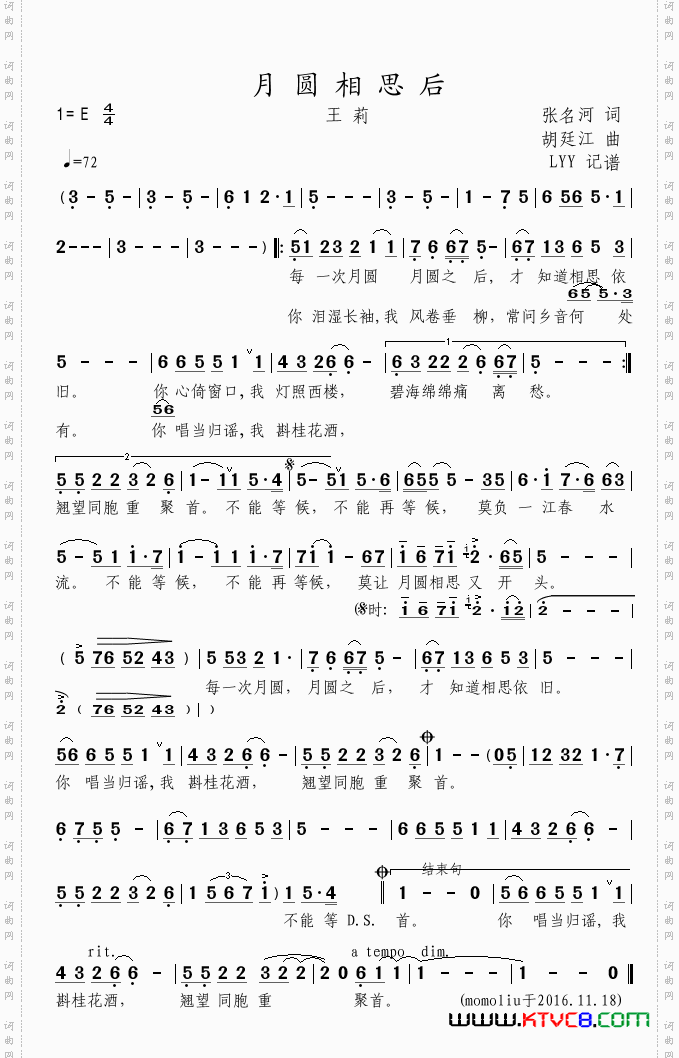 月圆相思后
1=E 4/4 王莉 张名河 词
胡廷江 曲
♩=72 LYY 记谱
(3 - 5 - | 3 - 5 - | 6 1 2·1 | 5 - - - | 3 - 5 - | 1 - 7 5 | 6 56 5·1 |
2 - - - | 3 - - - | 3 - - - ) ‖: 51 23 2 1 1 | 7 6 67 5 - | 67 136 5 3 |
每 一次月圆 月圆之 后, 才 知道相思 依
65 5·3
你 泪湿长袖,我 风卷垂 柳, 常问乡音何 处
5 - - - | 6 6 5 5 1 1 | 4 3 26 6 - | 6·3 22 2 6 67 | 5 - - - :‖
旧。 你 心倚窗口,我 灯照西楼, 碧海绵绵痛 离 愁。
56
有。 你 唱当归谣,我 斟桂花酒,
5 5 2 2 3 2 6 | 1 - 11 5·4 | 5 - 51 5·6 | 655 5 - 35 | 6·1 7·6 63 |
翘望同胞 重 聚 首。 不 能 等 候, 不 能 再 等 候, 莫负 一 江春 水
5 - 5 1 1·7 | 1 - 1 1 1·7 | 71 1 - 67 | 1 6 71 2·65 | 5 - - - |
流。 不 能 等 候, 不 能 再 等候, 莫让 月圆相思 又 开 头。
(𝄋时: 1 6 71 2·12 | 2 - - - |
( 5 76 52 43 ) | 5 53 2 1· | 7 6 67 5 - | 67 13 6 5 3 | 5 - - - |
每一次月圆, 月圆之 后, 才 知道相思依 旧。
2 ( 76 52 43 ) | )
56 6 5 5 1 1 | 4 3 2 6 6 - | 5 5 2 2 3 2 6 | 1 - - (05 | 12 32 1·7 |
你 唱当归谣,我 斟桂花酒, 翘望同胞 重 聚 首。
6 75 5 - | 67 13 6 5 3 | 5 - - - | 6 6 5 5 1 1 | 4 3 2 6 6 - |
结束句
5 5 2 2 3 2 6 | 1 5 6 7 1 ) 1 5·4 ‖ 1 - - 0 | 56 6 5 5 1 1 |
不能 等 D.S. 首。 你 唱当归谣,我
rit. a tempo dim.
4 3 2 6 6 - | 5 5 2 2 3 2 2 | 2 0 6 1 1 | 1 - - - | 1 - - 0 ‖
斟桂花酒, 翘望 同胞 重 聚首。 (momoliu于2016.11.18)
www.KTVC8.com